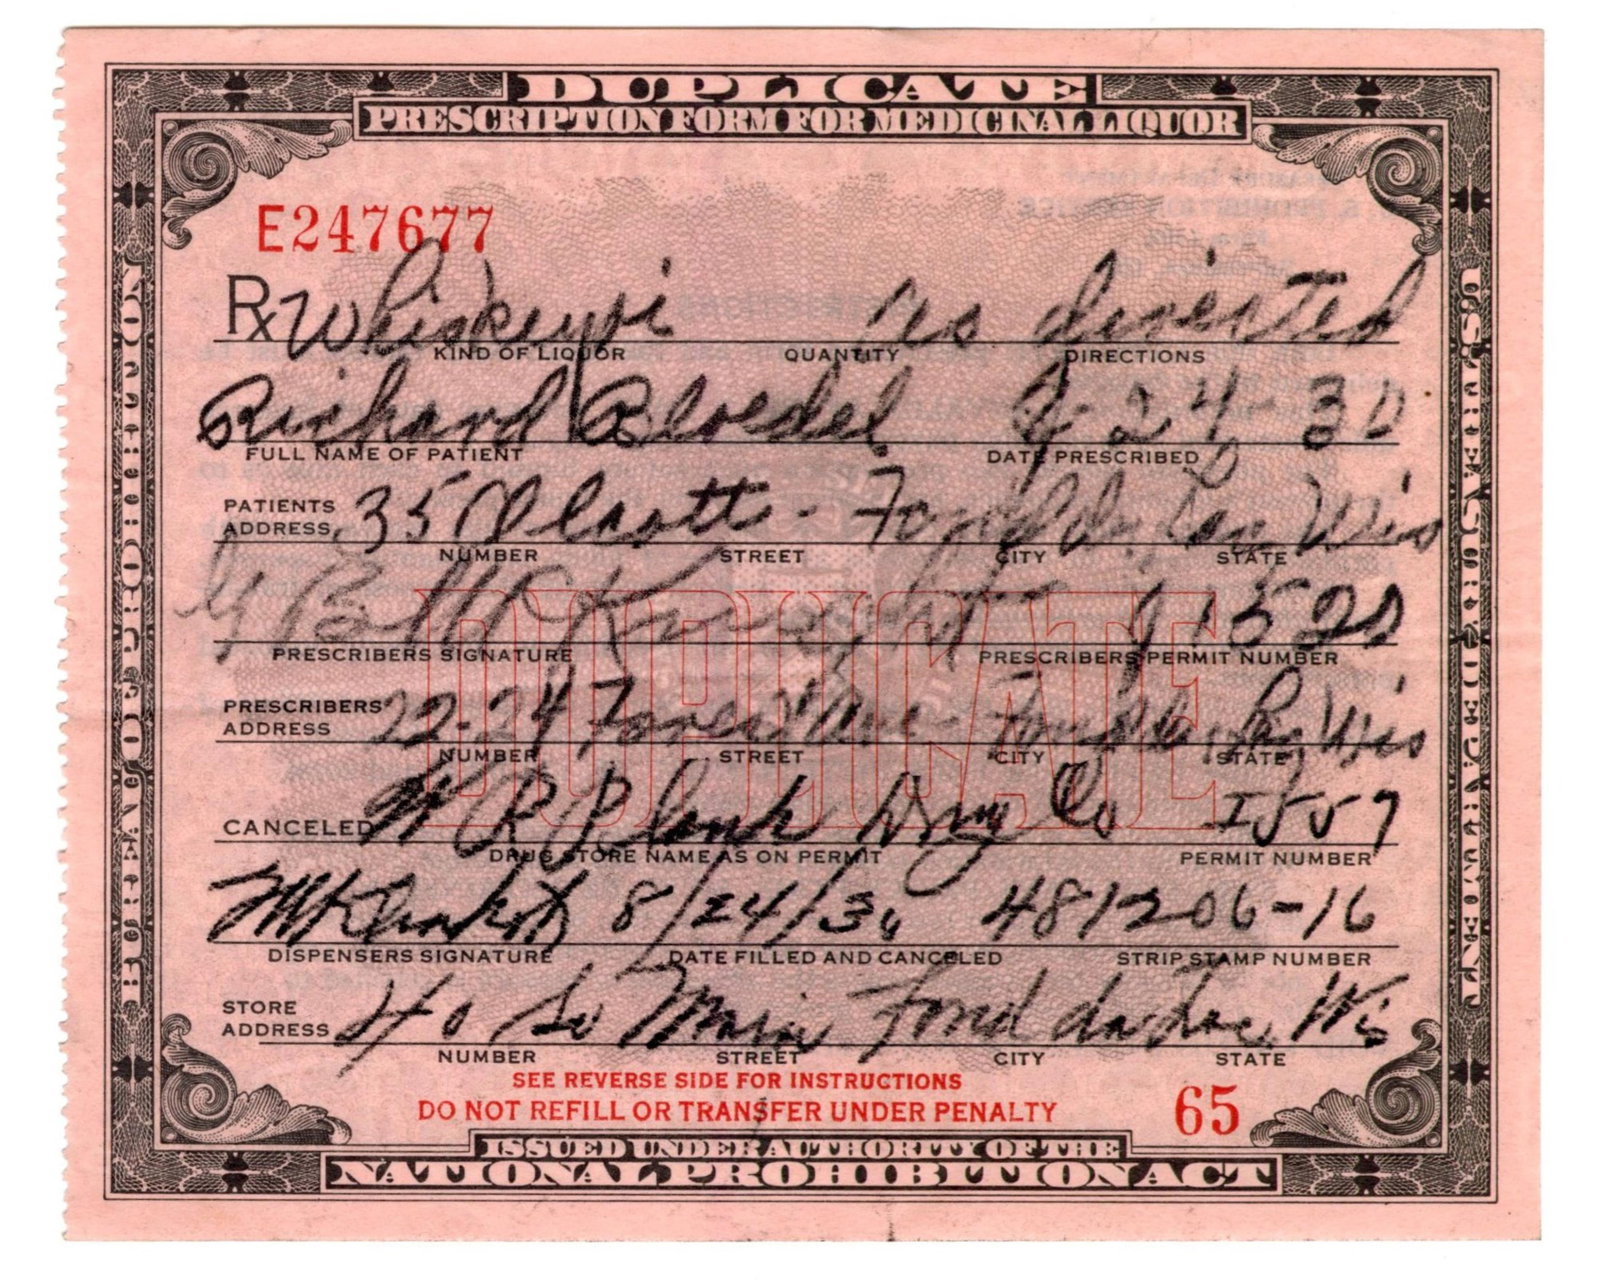 DUPLICATE
PRESCRIPTION FORM FOR MEDICINAL LIQUOR
E247677
Rx Whiskey As directed
KIND OF LIQUOR QUANTITY DIRECTIONS
Richard Bloedel 8-24-30
FULL NAME OF PATIENT DATE PRESCRIBED
PATIENTS ADDRESS 35 Olcott - Fond du Lac Wis
NUMBER STREET CITY STATE
Knight
PRESCRIBERS SIGNATURE PRESCRIBERS PERMIT NUMBER
DUPLICATE
PRESCRIBERS ADDRESS 22-24 Forest Ave - Fond du Lac Wis
NUMBER STREET CITY STATE
CANCELED W R Plank Drug Co I557
DRUG STORE NAME AS ON PERMIT PERMIT NUMBER
8/24/30 481206-16
DISPENSERS SIGNATURE DATE FILLED AND CANCELED STRIP STAMP NUMBER
STORE ADDRESS 40 So Main Fond du Lac, Wis
NUMBER STREET CITY STATE
SEE REVERSE SIDE FOR INSTRUCTIONS
DO NOT REFILL OR TRANSFER UNDER PENALTY
65
ISSUED UNDER AUTHORITY OF THE
NATIONAL PROHIBITION ACT